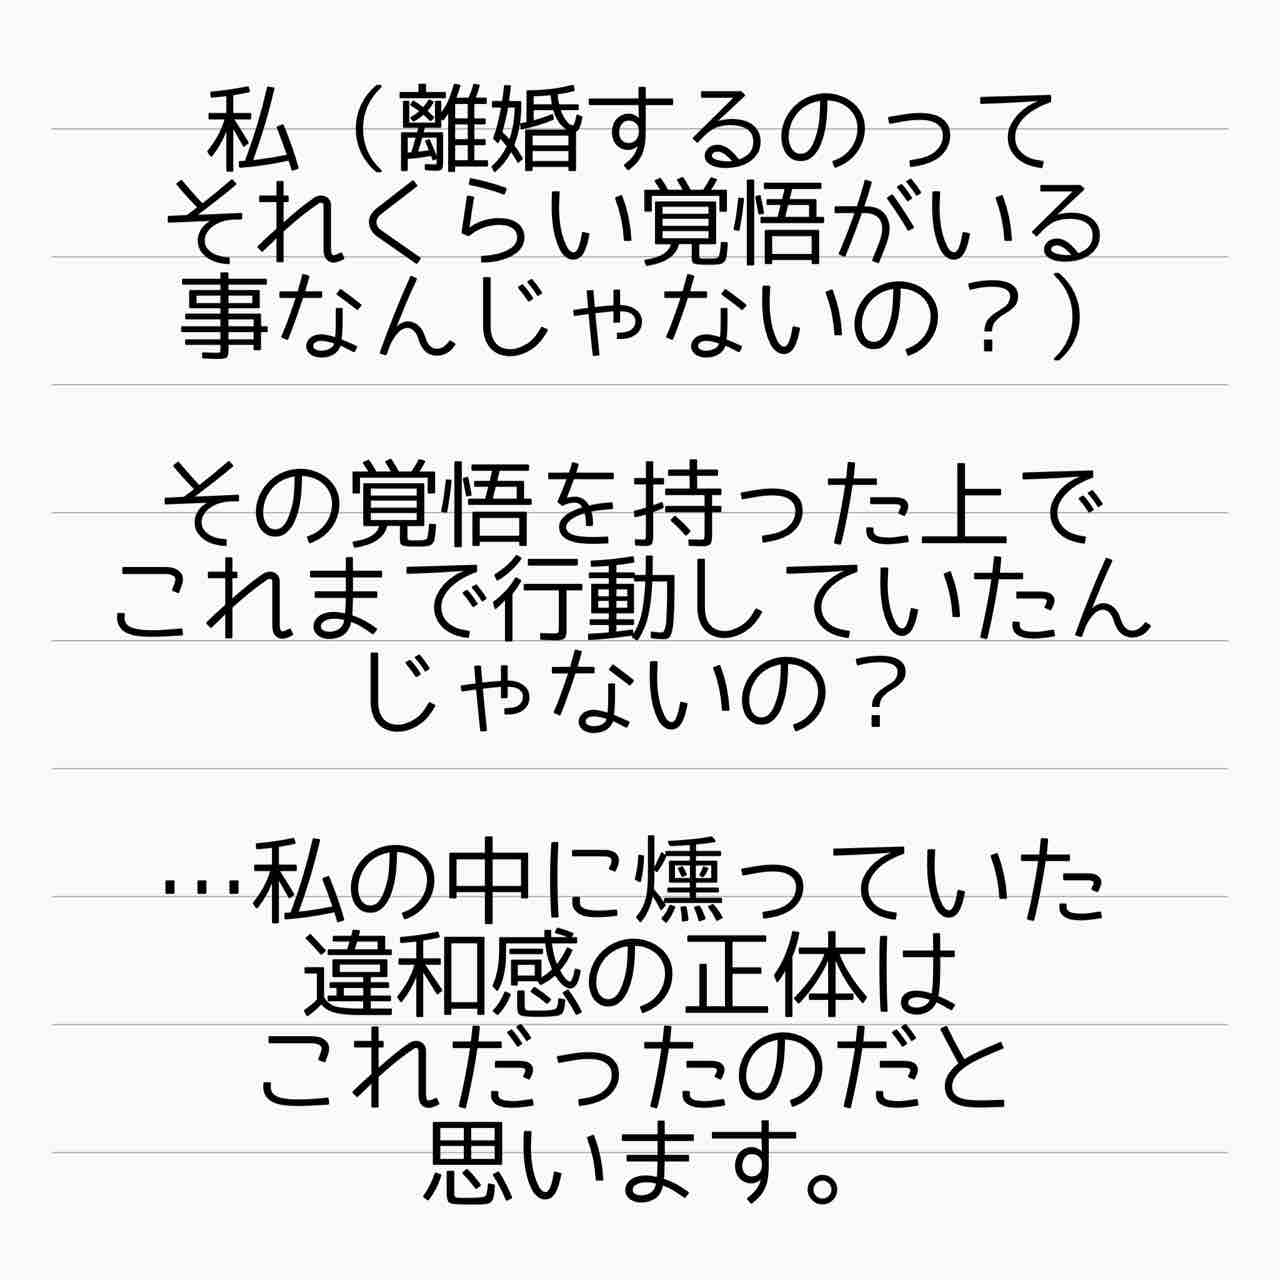 私（離婚するのって
それくらい覚悟がいる
事なんじゃないの？）
その覚悟を持った上で
これまで行動していたん
じゃないの？
…私の中に燻っていた
違和感の正体は
これだったのだと
思います。